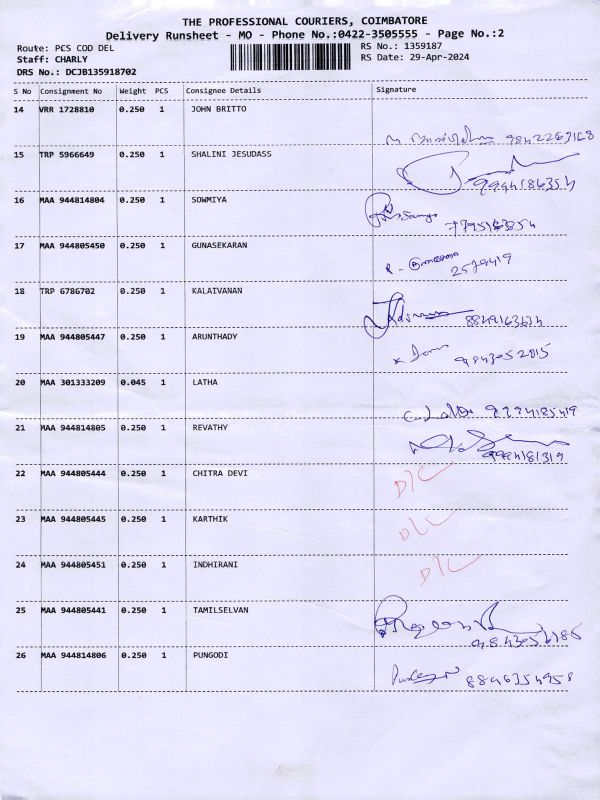 THE PROFESSIONAL COURIERS, COIMBATORE
Delivery Runsheet - MO - Phone No.:0422-3505555 - Page No.:2
Route: PCS COD DEL
Staff: CHARLY
DRS No.: DCJB135918702
RS No.: 1359187
RS Date: 29-Apr-2024
S No Consignment No Weight PCS Consignee Details Signature
14 VRR 1728810 0.250 1 JOHN BRITTO
9842263168
15 TRP 5966649 0.250 1 SHALINI JESUDASS
16 MAA 944814804 0.250 1 SOWMIYA
17 MAA 944805450 0.250 1 GUNASEKARAN
2579419
18 TRP 6786702 0.250 1 KALAIVANAN
19 MAA 944805447 0.250 1 ARUNTHADY
9843052015
20 MAA 301333209 0.045 1 LATHA
21 MAA 944814805 0.250 1 REVATHY
9994181319
22 MAA 944805444 0.250 1 CHITRA DEVI
D/C
23 MAA 944805445 0.250 1 KARTHIK
24 MAA 944805451 0.250 1 INDHIRANI
D/C
25 MAA 944805441 0.250 1 TAMILSELVAN
26 MAA 944814806 0.250 1 PUNGODI